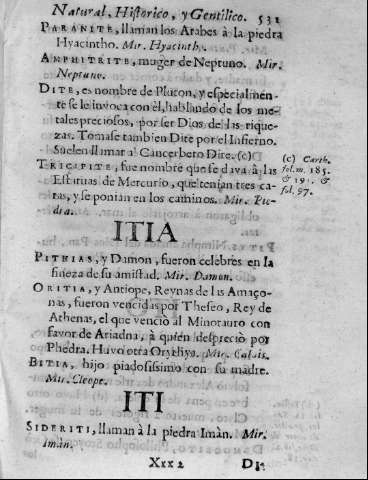 Natural, Historico, y Gentilico. 531
PARANITE, llaman los Arabes à la piedra
Hyacintho. Mir. Hyacintho.
AMPHITRITE, muger de Neptuno. Mir.
Neptuno.
DITE, es nombre de Pluton, y especialmen-
te se le invoca con èl, hablando de los me-
tales preciosos, por ser Dios de las rique-
zas. Tomase tambien Dite por el Infierno.
Suelen llamar al Cancerbero Dite. (c)
TRICIPITE, fue nombre que se dava à las
Estatuas de Mercurio, que tenian tres ca-
ras, y se ponian en los caminos. Mir. Pie-
dra.
(c) Carth.
fol. m. 185.
& 191. &
fol. 97.
ITIA
PITHIAS, y Damon, fueron celebres en la
fineza de su amistad. Mir. Damon.
ORITIA, y Antiope, Reynas de las Amaço-
nas, fueron vencidas por Theseo, Rey de
Athenas, el que venciò al Minotauro con
favor de Ariadna, à quien despreciò por
Phedra. Huvo otra Orythya. Mir. Calais.
BITIA, hijo piadosissimo con su madre.
Mir. Cleope.
ITI
SIDERITI, llaman à la piedra Imàn. Mir.
Imàn.
Xxx 2